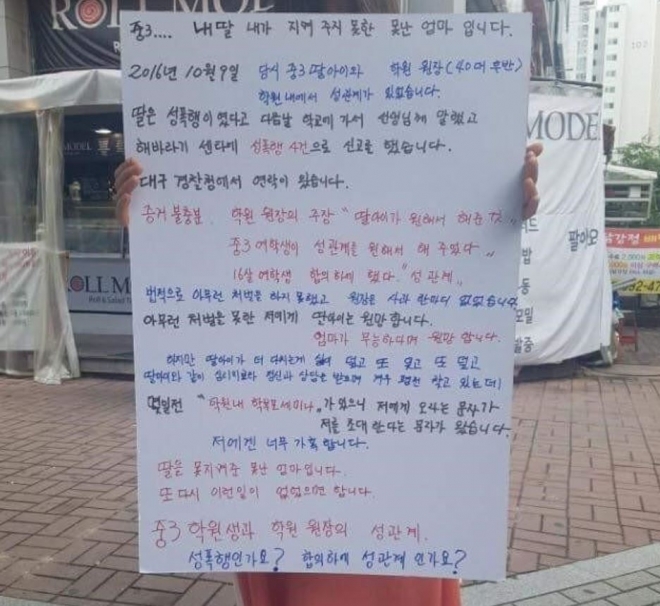 ROLL MODEL
중3.... 내딸 내가 지켜 주지 못한 못난 엄마 입니다.
2016년 10월 9일 당시 중3 딸아이와 학원 원장(40대 후반)
학원내에서 성관계가 있었습니다.
딸은 성폭행이였다고 다음날 학교에 가서 선생님께 말했고
해바라기 센타에 성폭행 4건으로 신고를 했습니다.
대구 경찰청에서 연락이 왔습니다.
증거 불충분. 학원 원장의 주장 "딸아이가 원해서 해준 것"
중3 여학생이 성관계를 원해서 해 주었다"
16살 여학생 합의하에 했다."성관계"
법적으로 아무런 처벌을 하지 못했고 원장은 사과 한마디 없었습니다
아무런 처벌을 못한 저에게 딸아이는 원망합니다.
엄마가 무능하다며 원망 합니다.
하지만 딸아이가 더 다치는게 싫어 덮고 또 덮고 또 덮고
딸아이와 같이 심리치료와 정신과 상담을 받으며 겨우 버텨 살고 있는데!
몇일전 "학원내 학부모세미나"가 있으니 저에게 오라는 문자가
저를 초대 한다는 문자가 왔습니다.
저에겐 너무 가혹 합니다.
딸을 못지켜준 못난 엄마입니다.
또 다시 이런일이 없었으면 합니다.
중3 학원생과 학원 원장의 성관계.
성폭행인가요? 합의하에 성관계 인가요?
MODEL
ROLL MODEL
Roll & Salad
MODE
팔아요
밥
동
모밀